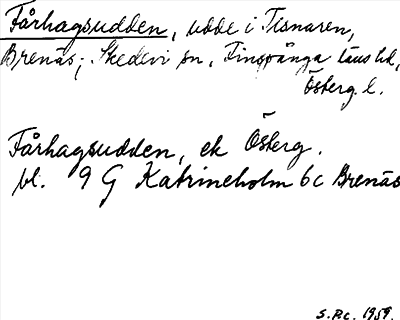 Fårhagsudden, udde i Tisnaren,
Brenäs; Skedevi sn, Finspånga läns hd,
Österg. l.
Fårhagsudden, ek Österg.
bl. 9 G Katrineholm 6 c Brenäs
S.P.C. 1959.